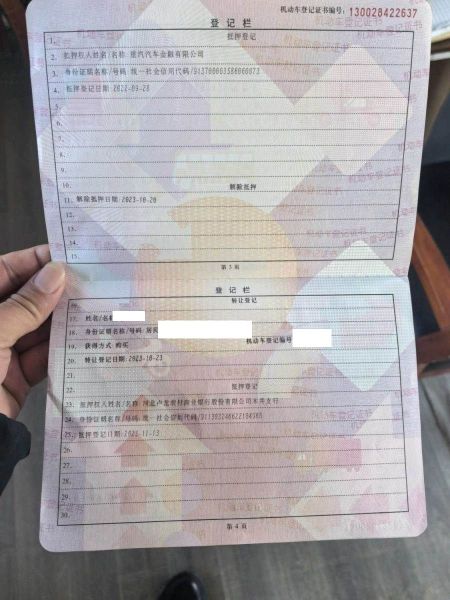 机动车登记证书编号：130028422637
登记栏
1. 抵押登记
2. 抵押权人姓名/名称：重汽汽车金融有限公司
3. 身份证明名称/号码：统一社会信用代码/
4. 抵押登记日期：2022-09-28
5.
6.
7.
8.
9.
10. 解除抵押
11. 解除抵押日期：2023-10-20
12.
13.
14.
15.
第 3 页
登记栏
16. 转让登记
17. 姓名/名称
18. 身份证明名称/号码：居民
19. 获得方式：购买 机动车登记编号
20. 转让登记日期：2023-10-23
21.
22. 抵押登记
23. 抵押权人姓名/名称：河北卢龙农村商业银行股份有限公司木井支行
24. 身份证明名称/号码：统一社会信用代码/
25. 抵押登记日期：2023-11-13
26.
27.
28.
29.
30.
第 4 页